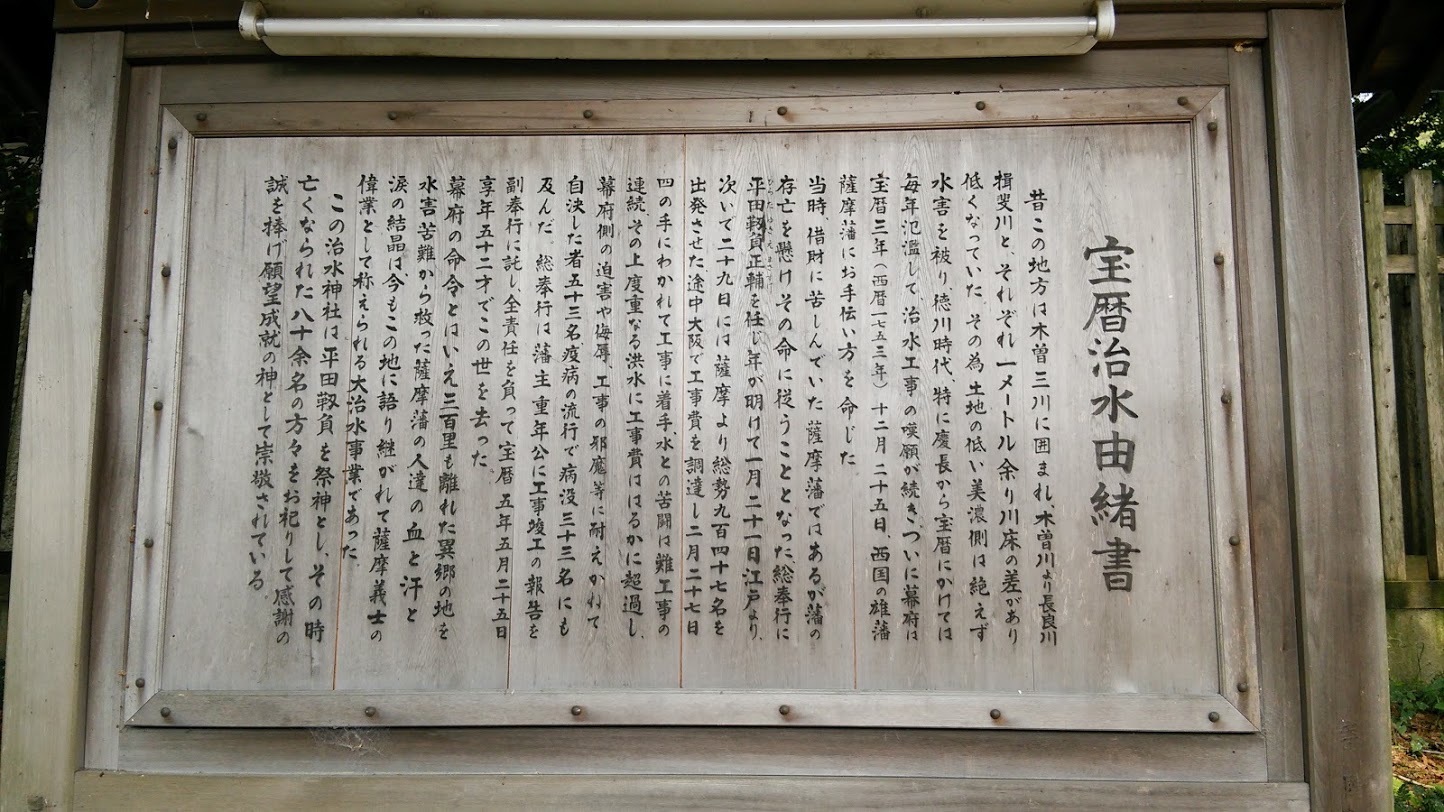 宝暦治水由緒書
昔この地方は木曽三川に囲まれ、木曽川より長良川
揖斐川と、それぞれ一メートル余り川床の差があり
低くなっていた。その為土地の低い美濃側は絶えず
水害を被り、徳川時代、特に慶長から宝暦にかけては
毎年氾濫して、治水工事の嘆願が続き、ついに幕府は
宝暦三年（西暦一七五三年）十二月二十五日、西国の雄藩
薩摩藩にお手伝い方を命じた
当時、借財に苦しんでいた薩摩藩ではあるが藩の
存亡を懸けその命に従うこととなった総奉行に
平田靱負正輔を任じ年が明けて一月二十一日江戸より、
次いで二十九日には薩摩より総勢九百四十七名を
出発させた、途中大阪で工事費を調達し二月二十七日
四の手にわかれて工事に着手、水との苦闘は難工事の
連続、その上度重なる洪水に工事費ははるかに超過し、
幕府側の迫害や侮辱、工事の邪魔等に耐えかねて
自決した者五十三名疫病の流行で病没三十三名にも
及んだ。総奉行は藩主重年公に工事竣工の報告を
副奉行に託し、全責任を負って宝暦五年五月二十五日
享年五十二才でこの世を去った
幕府の命令とはいえ三百里も離れた異郷の地を
水害苦難から救った薩摩藩の人達の血と汗と
涙の結晶は、今もこの地に語り継がれて薩摩義士の
偉業として称えられる大治水事業であった、
この治水神社は平田靱負を祭神とし、その時
亡くなられた八十余名の方々をお祀りして感謝の
誠を捧げ願望成就の神として崇敬されている